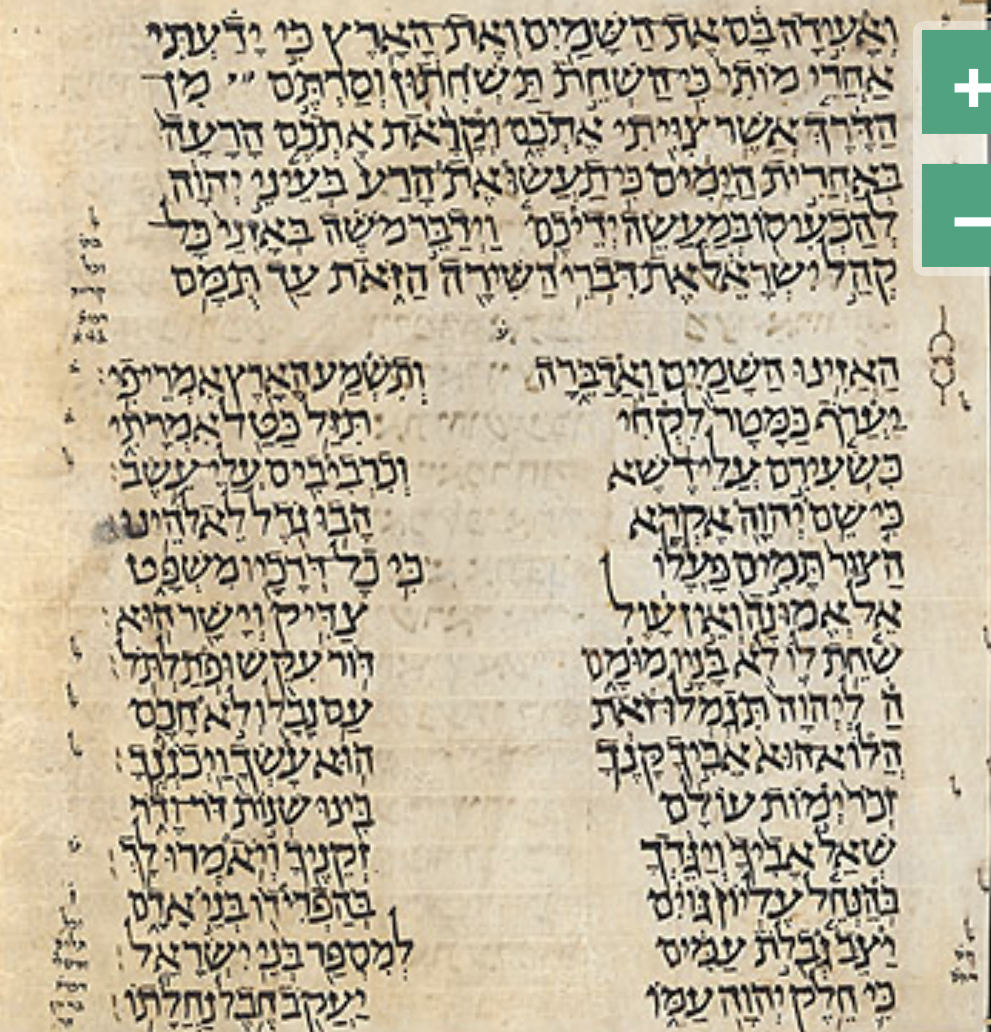 וְאָעִידָה בָּם אֶת הַשָּׁמַיִם וְאֶת הָאָרֶץ כִּי יָדַעְתִּי
אַחֲרֵי מוֹתִי כִּי הַשְׁחֵת תַּשְׁחִתוּן וְסַרְתֶּם מִן
הַדֶּרֶךְ אֲשֶׁר צִוִּיתִי אֶתְכֶם וְקָרָאת אֶתְכֶם הָרָעָה
בְּאַחֲרִית הַיָּמִים כִּי תַעֲשׂוּ אֶת הָרַע בְּעֵינֵי יְהוָה
לְהַכְעִיסוֹ בְּמַעֲשֵׂה יְדֵיכֶם וַיְדַבֵּר מֹשֶׁה בְּאָזְנֵי כָּל
קְהַל יִשְׂרָאֵל אֶת דִּבְרֵי הַשִּׁירָה הַזֹּאת עַד תֻּמָּם
הַאֲזִינוּ הַשָּׁמַיִם וַאֲדַבֵּרָה וְתִשְׁמַע הָאָרֶץ אִמְרֵי פִי׃
יַעֲרֹף כַּמָּטָר לִקְחִי תִּזַּל כַּטַּל אִמְרָתִי
כִּשְׂעִירִם עֲלֵי דֶשֶׁא וְכִרְבִיבִים עֲלֵי עֵשֶׂב׃
כִּי שֵׁם יְהוָה אֶקְרָא הָבוּ גֹדֶל לֵאלֹהֵינוּ׃
הַצּוּר תָּמִים פָּעֳלוֹ כִּי כָל דְּרָכָיו מִשְׁפָּט
אֵל אֱמוּנָה וְאֵין עָוֶל צַדִּיק וְיָשָׁר הוּא׃
שִׁחֵת לוֹ לֹא בָּנָיו מוּמָם דּוֹר עִקֵּשׁ וּפְתַלְתֹּל׃
הַ לְיהוָה תִּגְמְלוּ זֹאת עַם נָבָל וְלֹא חָכָם
הֲלוֹא הוּא אָבִיךָ קָּנֶךָ הוּא עָשְׂךָ וַיְכֹנְנֶךָ׃
זְכֹר יְמוֹת עוֹלָם בִּינוּ שְׁנוֹת דֹּר־וָדֹר
שְׁאַל אָבִיךָ וְיַגֵּדְךָ זְקֵנֶיךָ וְיֹאמְרוּ לָךְ׃
בְּהַנְחֵל עֶלְיוֹן גּוֹיִם בְּהַפְרִידוֹ בְּנֵי אָדָם
יַצֵּב גְּבֻלֹת עַמִּים לְמִסְפַּר בְּנֵי יִשְׂרָאֵל׃
כִּי חֵלֶק יְהוָה עַמּוֹ יַעֲקֹב חֶבֶל נַחֲלָתוֹ׃